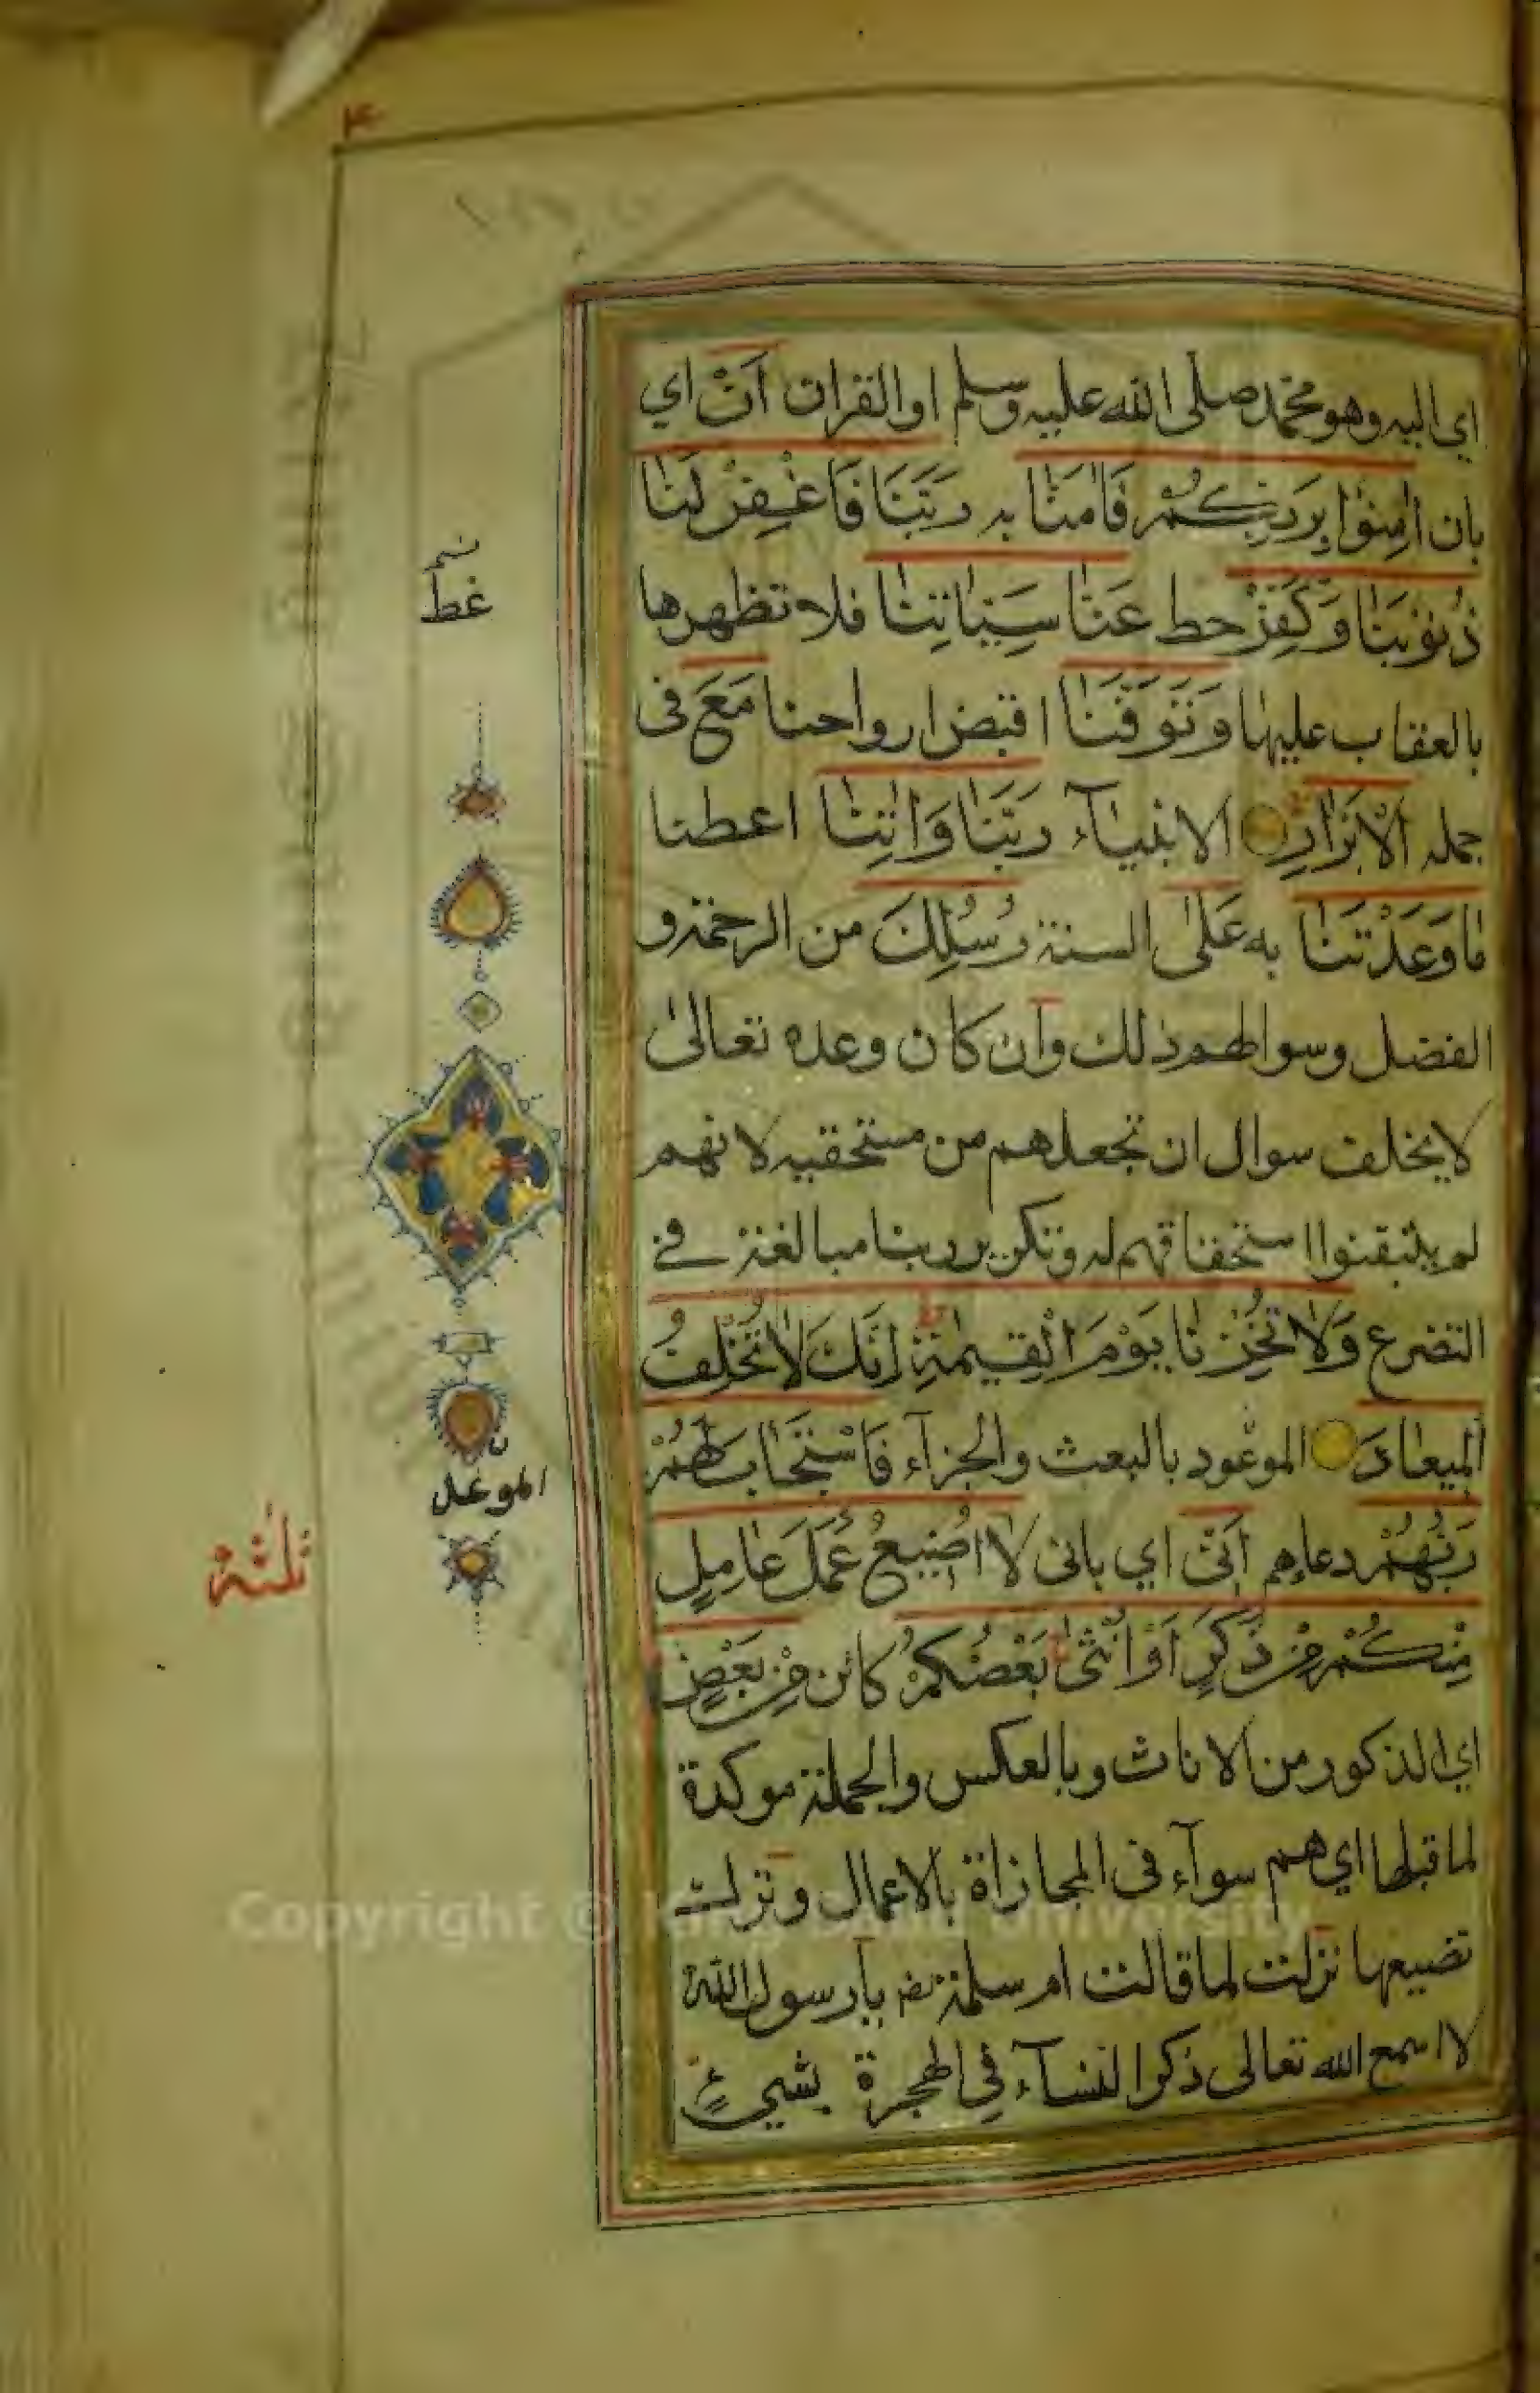 ۴
اي اليه وهو محمد صلى الله عليه وسلم او القران اَنْ اي
بان اٰمِنُوْا بِرَبِّكُمْ فَاٰمَنَّا به رَبَّنَا فَاغْفِرْ لَنَا
ذُنُوْبَنَا وَكَفِّرْ حط عَنَّا سَيِّاٰتِنَا فلا تظهرها
غط
بالعقاب عليها وَتَوَفَّنَا اقبض ارواحنا مَعَ فى
جمله الْاَبْرَارِ الانبيآء رَبَّنَا وَاٰتِنَا اعطنا
مَا وَعَدْتَّنَا به عَلٰى السنة رُسُلِكَ من الرحمة و
الفضل وسوالهم ذلك وان كان وعده تعالى
لا يخلف سوال ان تجعلهم من مستحقيه لانهم
لم يتيقنوا استحقاقهم له وتكرير ربنا مبالغة فے
التضرع وَلَا تُخْزِنَا يَوْمَ الْقِيٰمَةِ اِنَّكَ لَا تُخْلِفُ
الْمِيْعَادَ الموعود بالبعث والجزآء فَاسْتَجَابَ لَهُمْ
الموعد ن
رَبُّهُمْ دعاءهم اَنِّىْ اي بانى لَا اُضِيْعُ عَمَلَ عَامِلٍ
ثلثة
مِّنْكُمْ مِّنْ ذَكَرٍ اَوْ اُنْثٰى بَعْضُكُمْ كائن مِّنْ بَعْضٍ
اي الذكور من الاناث وبالعكس والجملة موكدة
لما قبلها اي هم سوآء فى المجازاة بالاعمال وترك
تضييعها نزلت لما قالت ام سلمة يا رسول الله
لا اسمع الله تعالى ذكر النسآء في الهجرة بشيءٍ
Copyright © King Saud University